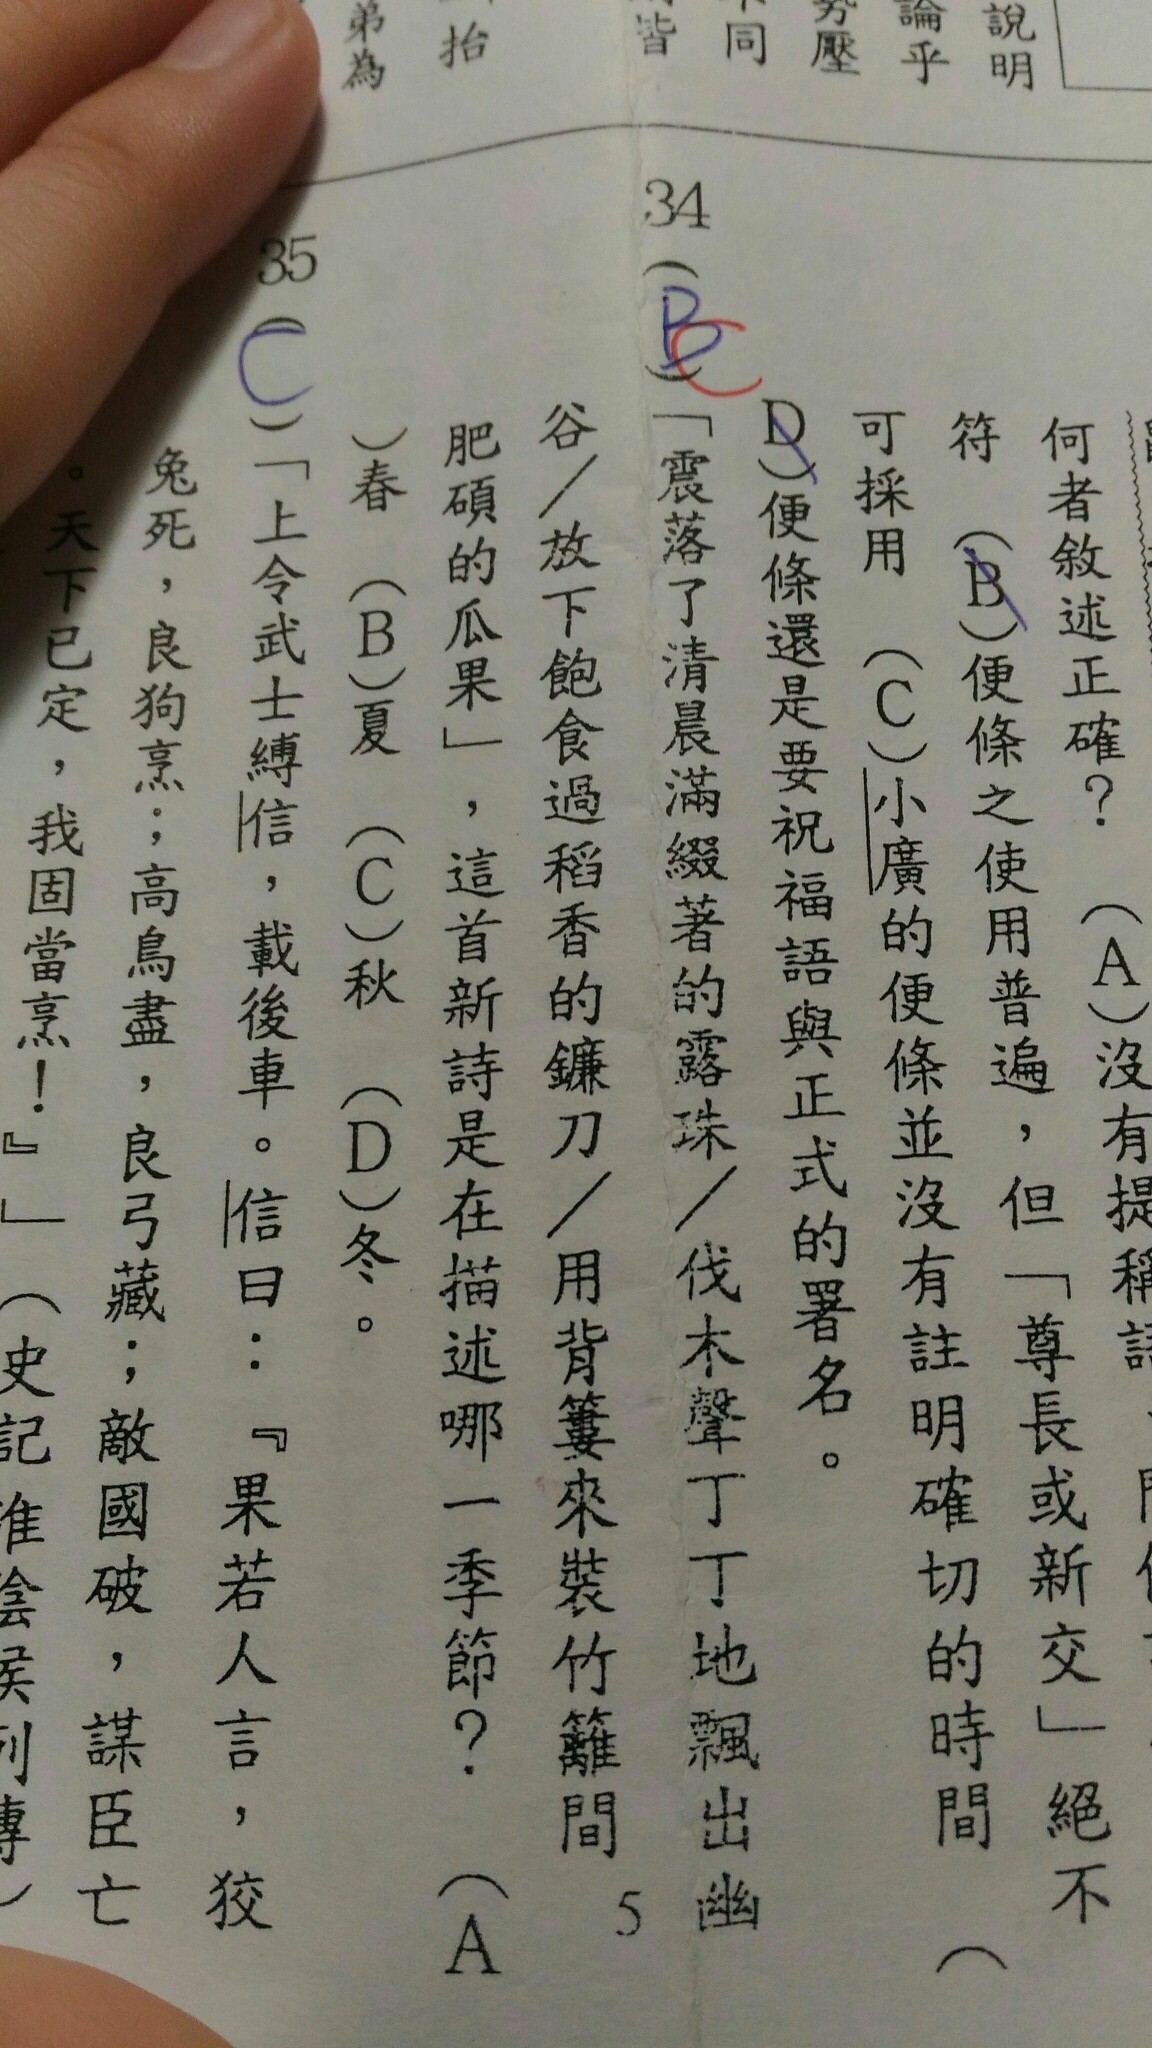 說明
論乎
勢壓
不同
皆
抬
弟為
何者敘述正確？　(A)沒有提稱語
符　(B)便條之使用普遍，但「尊長或新交」絕不
可採用　(C)小廣的便條並沒有註明確切的時間　(
D)便條還是要祝福語與正式的署名。
34 (BC)「震落了清晨滿綴著的露珠／伐木聲丁丁地飄出幽
谷／放下飽食過稻香的鐮刀／用背簍來裝竹籬間
肥碩的瓜果」，這首新詩是在描述哪一季節？　(A
)春　(B)夏　(C)秋　(D)冬。
35 (C)「上令武士縛信，載後車。信曰：『果若人言，狡
兔死，良狗烹；高鳥盡，良弓藏；敵國破，謀臣亡
。天下已定，我固當烹！』」（史記淮陰侯列傳）
5